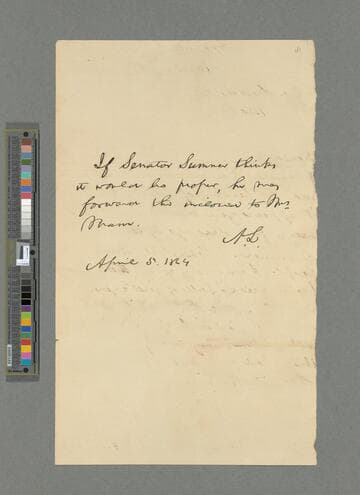 If Senator Sumner thinks
it would be proper, he may
forward the inclosed to Mrs.
Mann.
A. L.
April 5. 1864